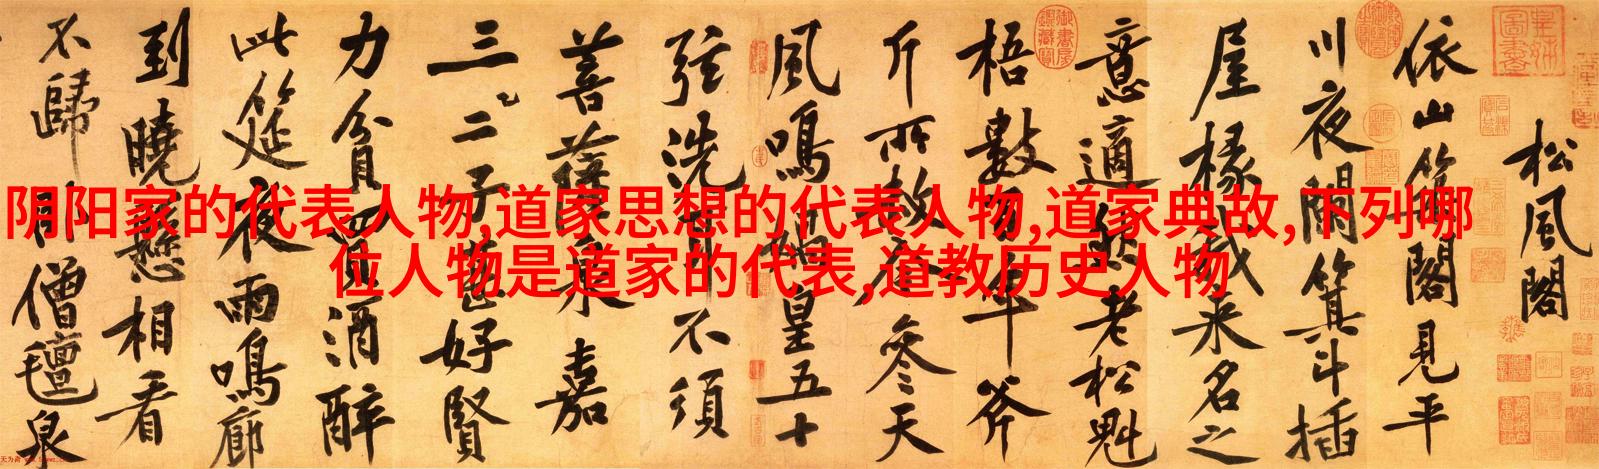 松風閣
依山築閣見平
川夜闌箕斗插
屋椽我來名之
意適然老松魁
梧數百年斧
斤所赦今參天
風鳴媧皇五十
弦洗耳不須
菩薩泉嘉
三二子甚好賢
力貧買酒醉
此筵夜雨鳴廊
到曉懸相看
不歸臥僧氈泉
阴阳家的代表人物,道家思想的代表人物,道家典故,下列哪
位人物是道家的代表,道教历史人物